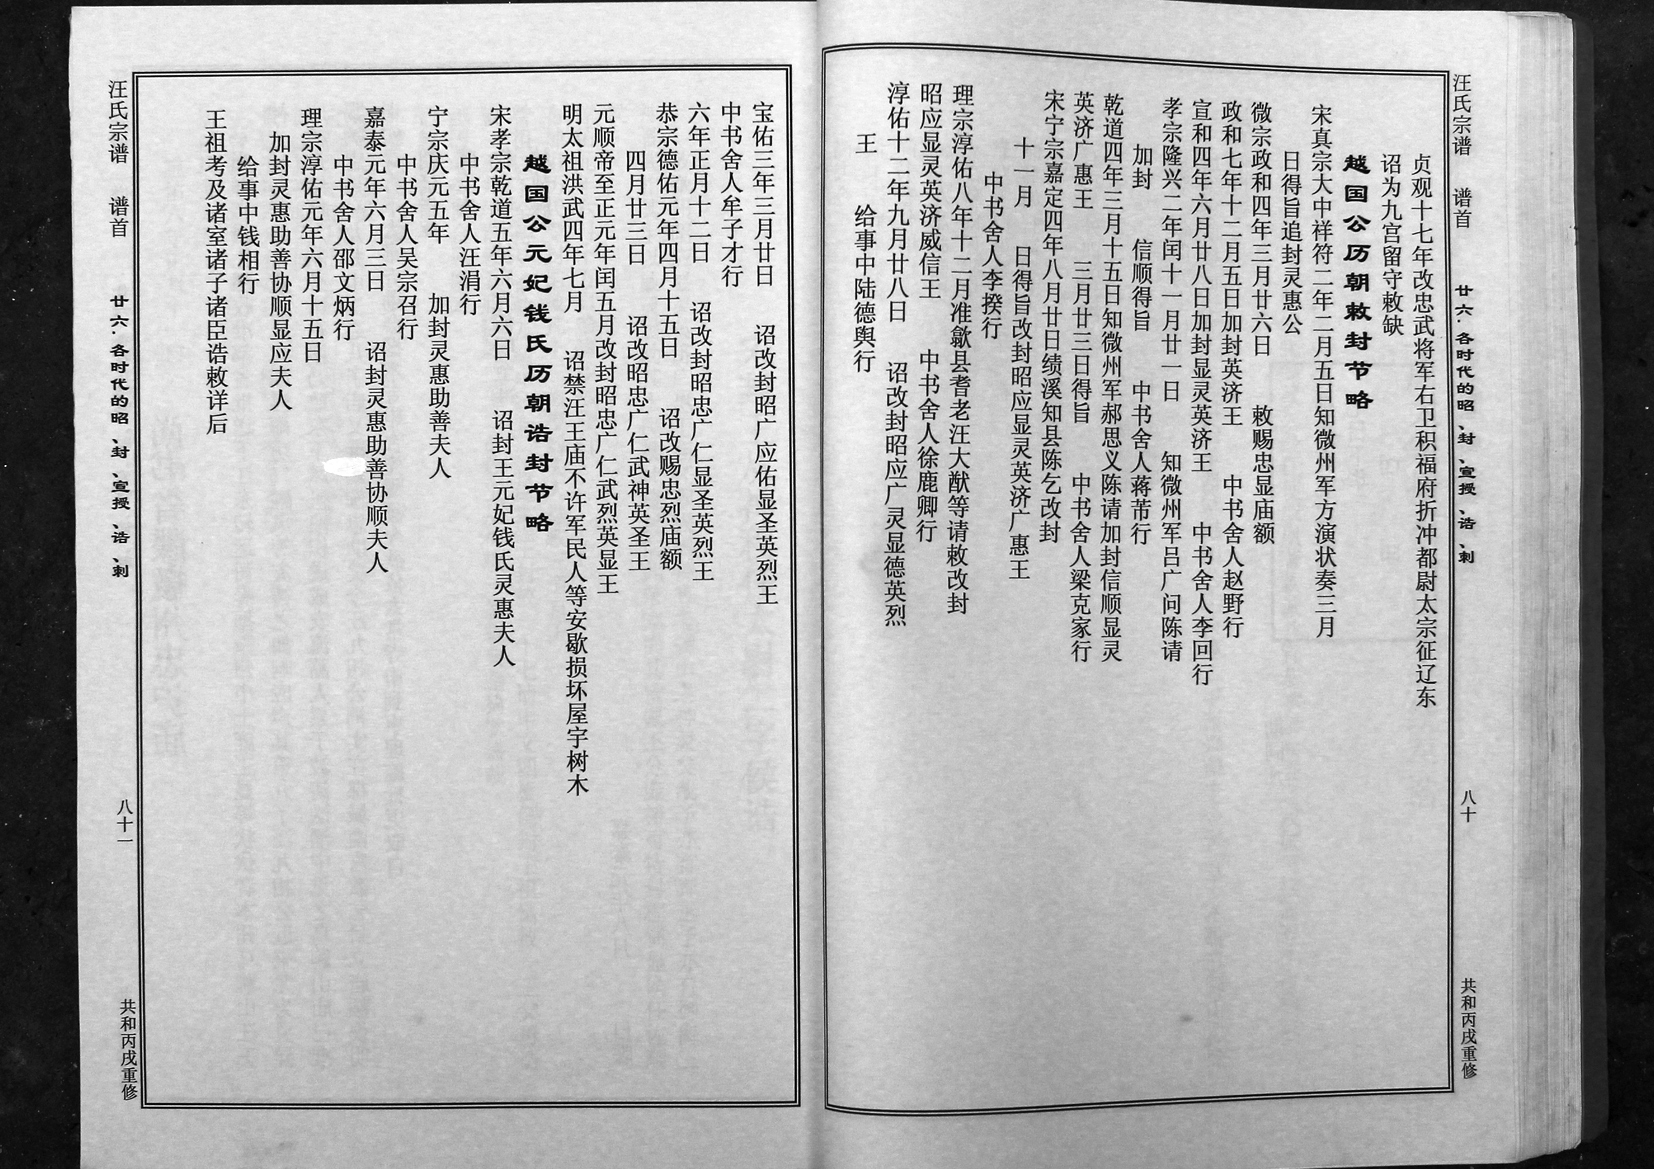 汪氏宗谱 谱首 廿六·各时代的昭、封、宣授、诰、刺 八十 共和丙戌重修
贞观十七年改忠武将军右卫积福府折冲都尉太宗征辽东
诏为九宫留守敕缺
越国公历朝敕封节略
宋真宗大中祥符二年二月五日知微州军方演状奏三月
日得旨追封灵惠公
微宗政和四年三月廿六日 敕赐忠显庙额
政和七年十二月五日加封英济王 中书舍人赵野行
宣和四年六月廿八日加封显灵英济王 中书舍人李回行
孝宗隆兴二年闰十一月廿一日 知微州军吕广问陈请
加封 信顺得旨 中书舍人蒋芾行
乾道四年三月十五日知微州军郝思义陈请加封信顺显灵
英济广惠王 三月廿三日得旨 中书舍人梁克家行
宋宁宗嘉定四年八月廿日绩溪知县陈乞改封
十一月 日得旨改封昭应显灵英济广惠王
中书舍人李揆行
理宗淳佑八年十二月准歙县耆老汪大猷等请敕改封
昭应显灵英济威信王 中书舍人徐鹿卿行
淳佑十二年九月廿八日 诏改封昭应广灵显德英烈
王 给事中陆德舆行
宝佑三年三月廿日 诏改封昭广应佑显圣英烈王
中书舍人牟子才行
六年正月十二日 诏改封昭忠广仁显圣英烈王
恭宗德佑元年四月十五日 诏改赐忠烈庙额
四月廿三日 诏改昭忠广仁武神英圣王
元顺帝至正元年闰五月改封昭忠广仁武烈英显王
明太祖洪武四年七月 诏禁汪王庙不许军民人等安歇损坏屋宇树木
越国公元妃钱氏历朝诰封节略
宋孝宗乾道五年六月六日 诏封王元妃钱氏灵惠夫人
中书舍人汪涓行
宁宗庆元五年 加封灵惠助善夫人
中书舍人吴宗召行
嘉泰元年六月三日 诏封灵惠助善协顺夫人
中书舍人邵文炳行
理宗淳佑元年六月十五日
加封灵惠助善协顺显应夫人
给事中钱相行
王祖考及诸室诸子诸臣诰敕详后
汪氏宗谱 谱首 廿六·各时代的昭、封、宣授、诰、刺 八十一 共和丙戌重修